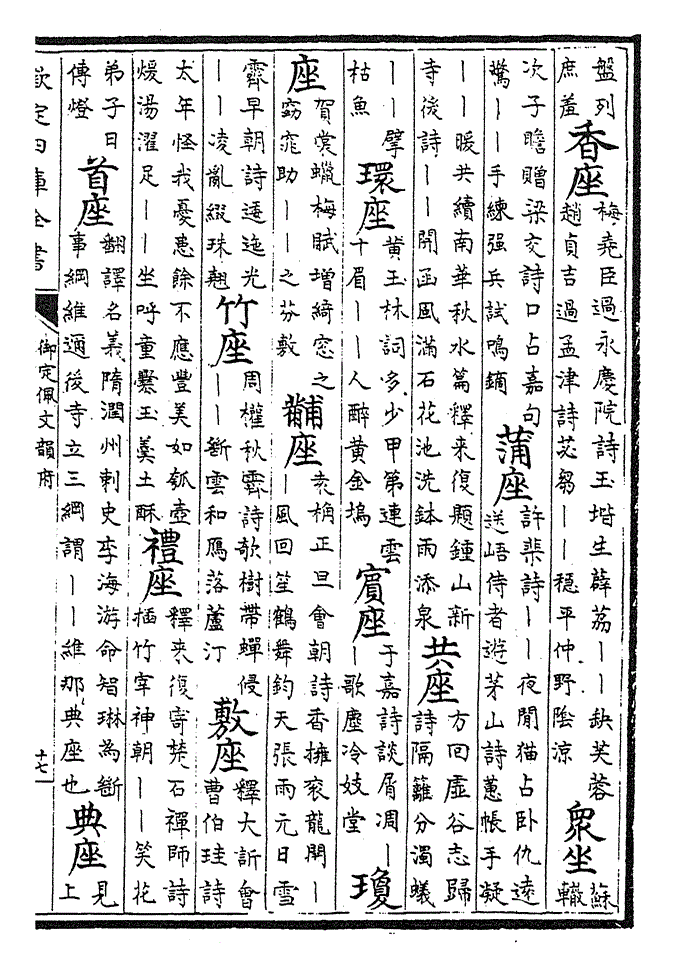 盤列
庶羞
香座
梅堯臣過永慶院詩玉堦生薜荔——缺芙蓉
趙貞吉過孟津詩苾芻——穩平仲野陰涼
衆坐
蘇
轍
次子瞻贈梁交詩口占嘉句
驚——手練强兵試鳴鏑
蒲座
許棐詩——夜閒猫占卧仇逺
送峿侍者遊茅山詩蕙帳手凝
——暖共續南華秋水篇釋来復題鍾山新
寺後詩——開函風滿石花池洗鉢雨添泉
共座
方回虚谷志歸
詩隔籬分濁蟻
——擘
枯魚
環座
黄玉林詞多少甲第連雲
十眉——人醉黄金塢
賓座
于嘉詩談屑凋—
—歌塵冷妓堂
瓊
座
賀裳蠟梅賦增綺窓之
窈窕助——之芬敷
黼座
袁桷正旦會朝詩香擁衮龍開—
—風回笙鶴舞鈞天張雨元日雪
霽早朝詩逶迤光
——凌亂綴珠翹
竹座
周權秋霽詩欹樹帶蟬侵
——斷雲和鴈落蘆汀
敷座
釋大訢會
曹伯珪詩
太年怪我憂患餘不應豐美如瓠壺
煖湯濯足——坐呼童爨玉羮土酥
禮座
釋来復寄楚石禪師詩
插竹宰神朝——笑花
弟子日
傳燈
首座
翻譯名義隋潤州刺史李海游命智琳為斷
事綱維邇後寺立三綱謂——維那典座也
典座
見
上
欽定四庫全書
御定佩文韻府
十七